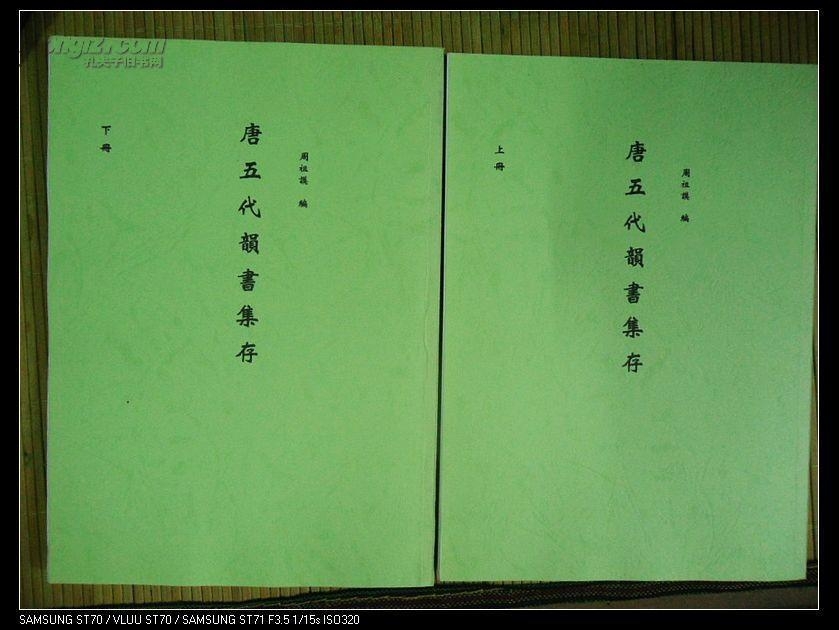 孔夫子旧书网
上冊
唐五代韻書集存
周祖謨 編
下冊
唐五代韻書集存
周祖謨 編
SAMSUNG ST70 / VLUU ST70 / SAMSUNG ST71 F3.5 1/15s ISO320